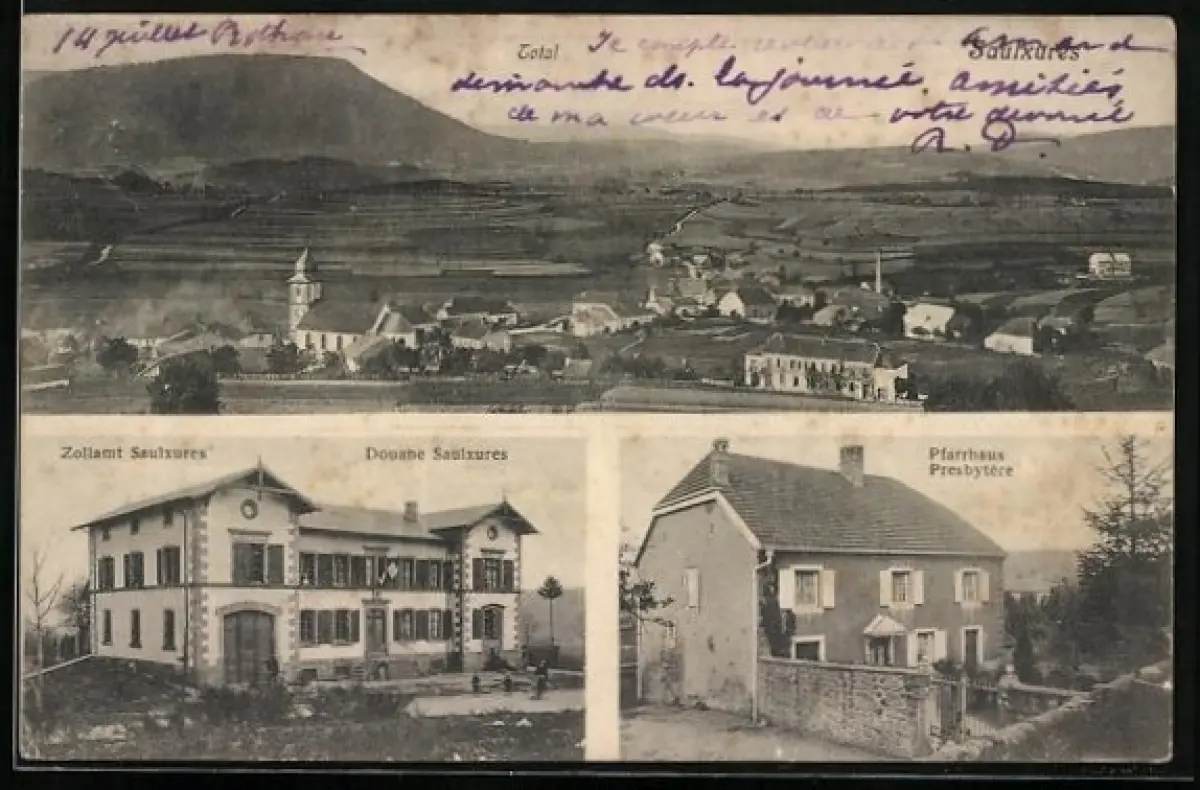 14 juillet Rothau
Total
Saulxures
Je compte
dimanche ds. la journée. Amitiés
de ma et de votre
R. D.
Zollamt Saulxures
Douane Saulxures
Pfarrhaus
Presbytère